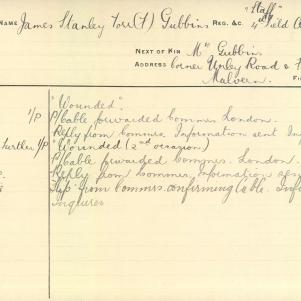 "Staff"
NAME James Stanley Torr(?) Gubbins REG. &C. 4th Field A
NEXT OF KIN Mr Gubbin
ADDRESS Corner Unley Road & F
Malvern. Fi
"Wounded".
1/P P/Cable forwarded Commrs London.
Reply from Commrs. Information sent Inq
further 1/P Wounded (2nd occasion)
P/Cable forwarded Commrs. London.
Reply from Commrs. Information
Slip from Commrs. confirming Cable. Inf
Inquirer